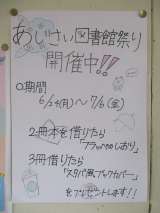 あじさい図書館祭り
開催中!!
○期間
6/24(月)〜7/5(金)
2冊本を借りたら
しおり
3冊借りたら
"スタバ風ブックカバー"
をプレゼントします!!